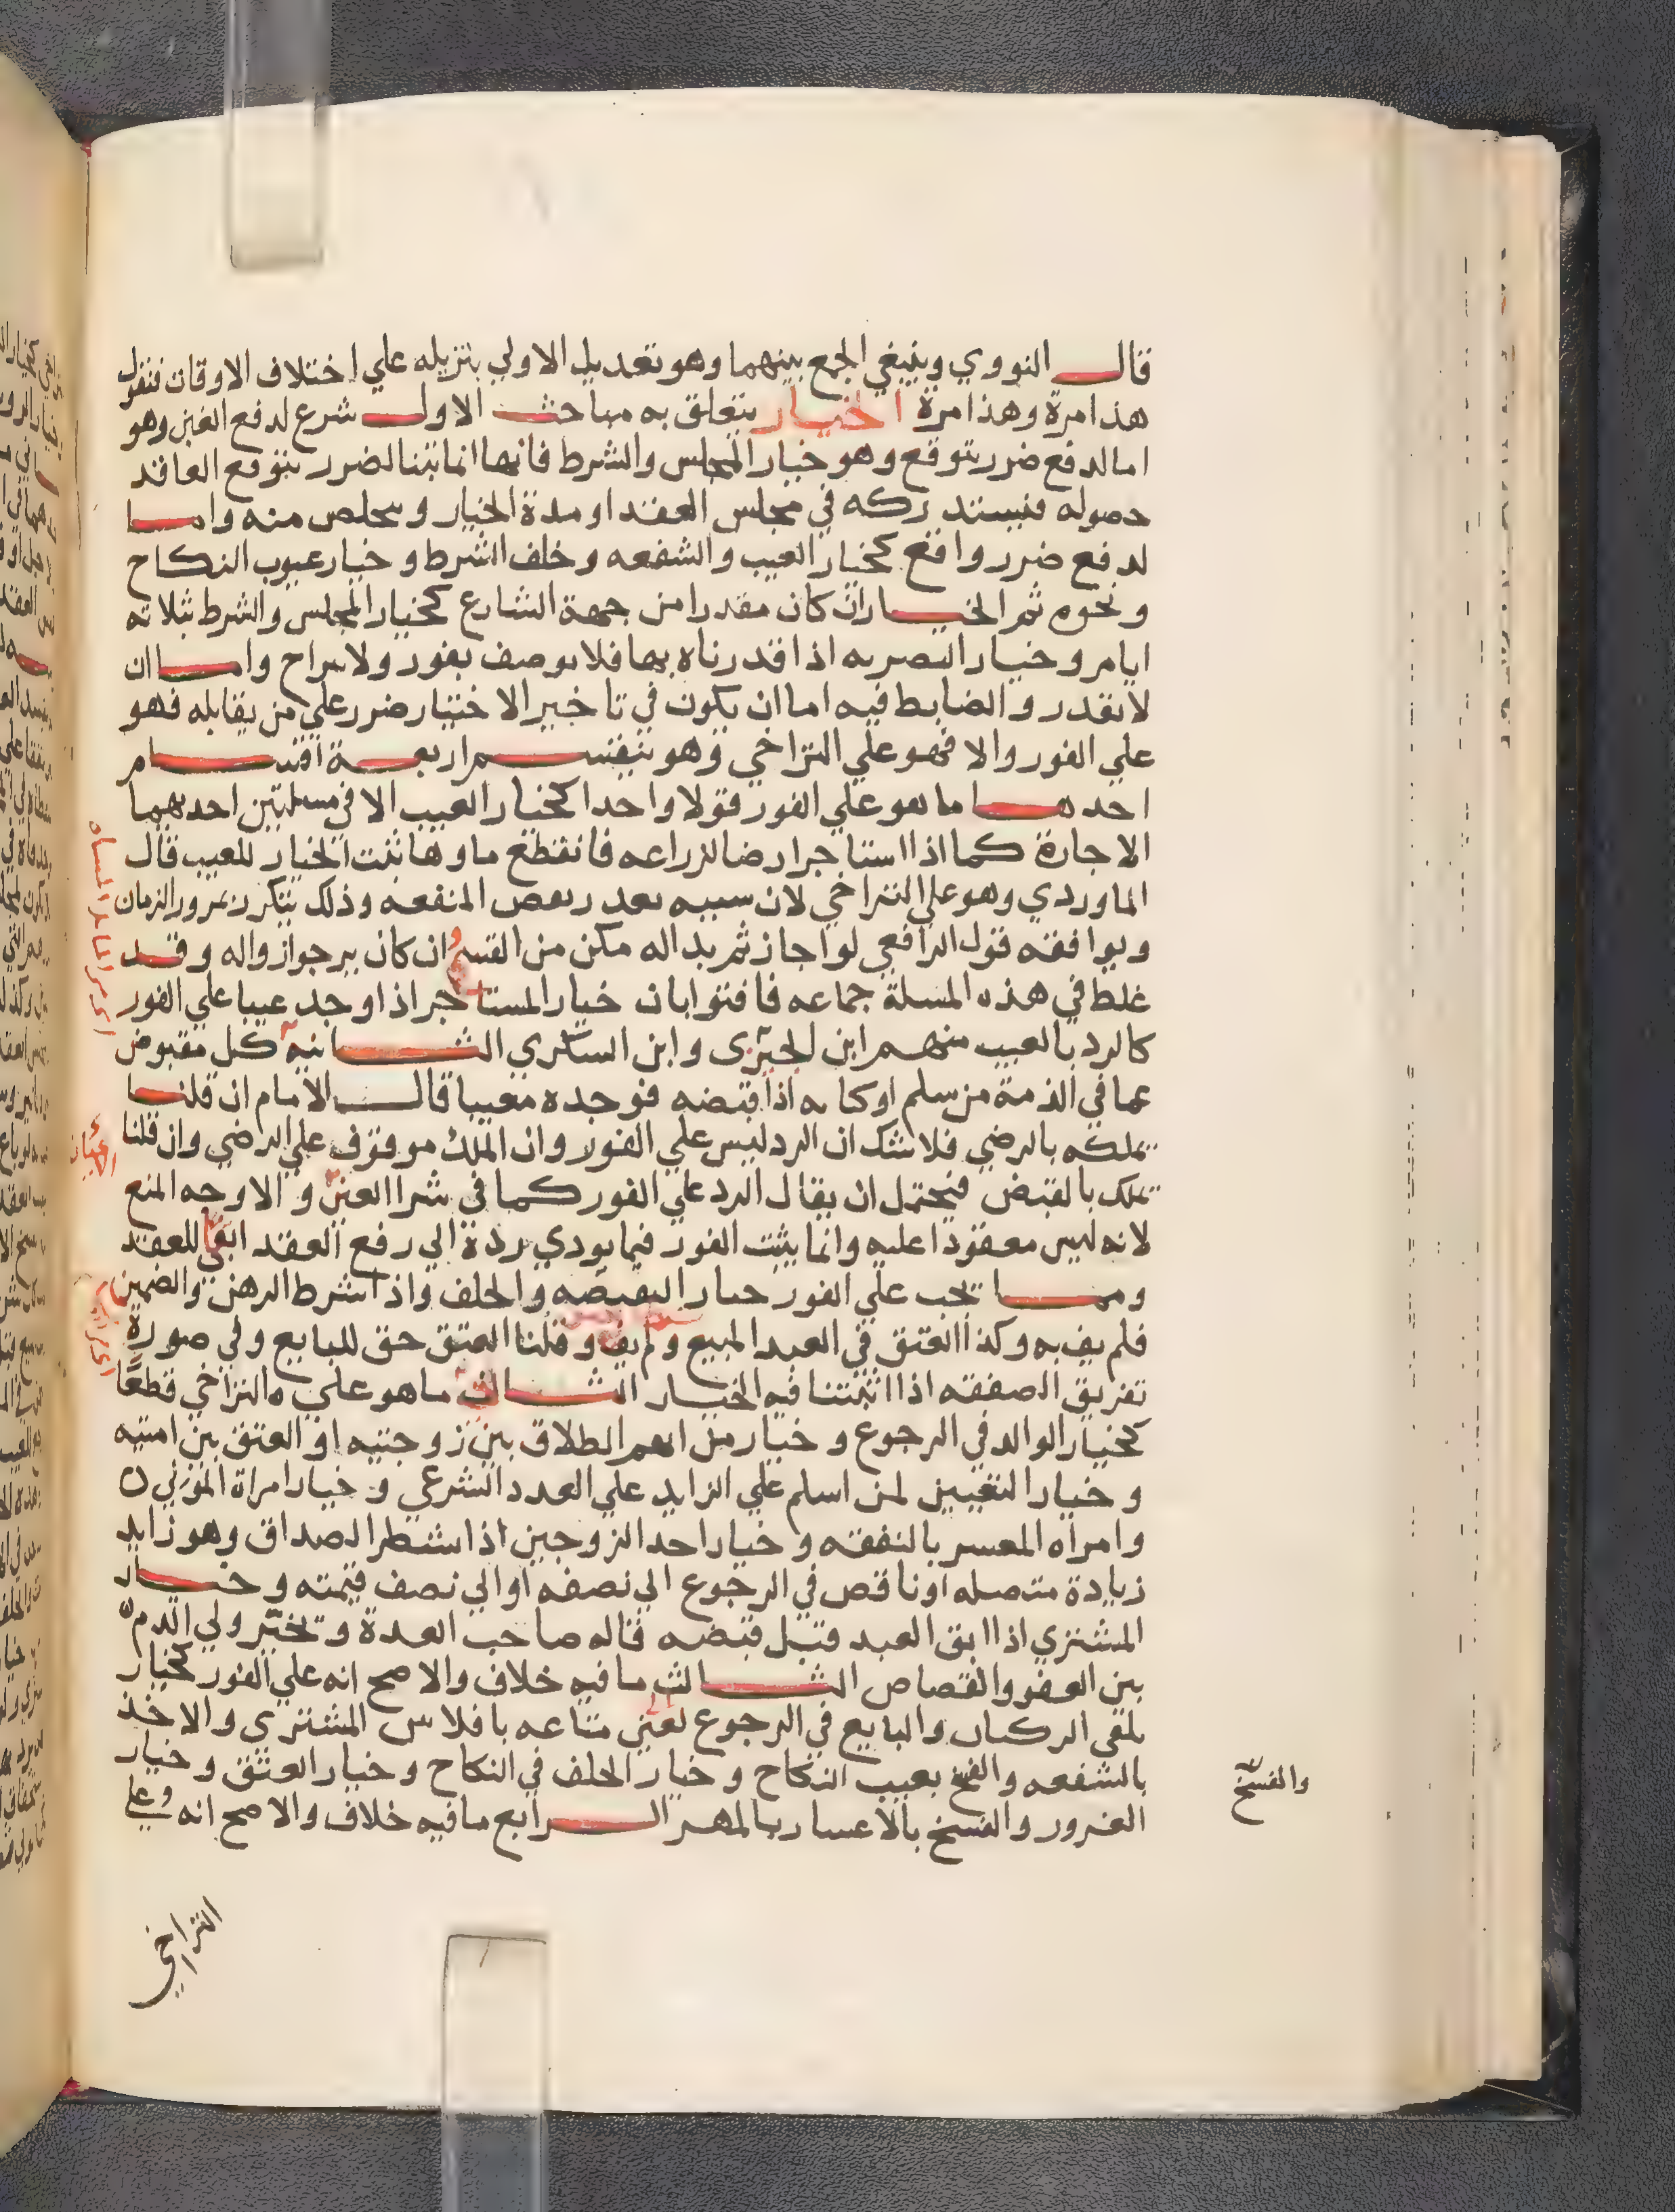 قال النووي وينبغي الجمع بينهما وهو تعديل الاولي بتنزيله علي اختلاف الاوقات فنقول
هذا مرة وهذا مرة الخيار يتعلق به مباحث الاول شرع لدفع الغبن وهو
اما لدفع ضرر يتوقع وهو خيار المجلس والشرط فانهما انما ثبتا لضرر يتوقع العاقد
حصوله فيستدركه في مجلس العقد او مدة الخيار ويتخلص منه واما
لدفع ضرر واقع كخيار العيب والشفعه وخلف الشرط وخيار عيوب النكاح
ونحوه ثم الخيار ان كان مقدرا من جهة الشارع كخيار المجلس والشرط ثلاثه
ايام وخيار التصريه اذا قدرناه بها فلا يوصف بفور ولا تراخ واما ان
لا يقدر والضابط فيه اما ان يكون في تاخير الاختيار ضرر علي من يقابله فهو
علي الفور والا فهو علي التراخي وهو ينقسم اربعة اقسام
احدها ما هو علي الفور قولا واحدا كخيار العيب الا في مسلتين احدهما
الاجارة كما اذا استاجر ارضا لزراعه فانقطع ماوها ثبت الخيار للعيب قال
الماوردي وهو علي التراخي لان سببه تعذر بعض المنفعه وذلك يتكرر بمرور الزمان
ويوافقه قول الرافعي لو اجاز ثم بدا له مكن من الفسخ ان كان يرجو زواله وقد
غلط في هذه المسلة جماعه فافتوا بان خيار المستاجر اذا وجد عيبا علي الفور
كالرد بالعيب منهم ابن الجميزى وابن السكري الثانيه كل مقبوض
عما في الذمة من سلم او كتابه اذا قبضه فوجده معيبا قال الامام ان قلنا
يملكه بالرضي فلا شك ان الرد ليس علي الفور وان الملك موقوف علي الرضي وان قلنا
يملك بالقبض فيحتمل ان يقال الرد علي الفور كما في شرا العين والاوجه المنع
لانه ليس معقودا عليه وانما يثبت الفور فيما يودي رده الي رفع العقد ابقا للعقد
ومما يجب علي الفور خيار والخلف واذا شرط الرهن والضمين
فلم يف به وكذا العتق في العبد المبيع ولم يف وقلنا العتق حق للبايع وفي صورة
تفريق الصفقه اذا اثبتنا فيه الخيار الثاني ما هو علي التراخي قطعا
كخيار الوالد في الرجوع وخيار من ابهم الطلاق بين زوجتيه او العتق بين امتيه
وخيار التعيين لمن اسلم علي الزايد علي العدد الشرعي وخيار امراة المولي
وامراه المعسر بالنفقه وخيار احد الزوجين اذا شطر الصداق وهو زايد
زيادة متصله او ناقص في الرجوع الي نصفه او الي نصف قيمته وخيار
المشتري اذا ابق العبد قبل قبضه قاله صاحب العدة وتخير ولي الدم
بين العفو والقصاص الثالث ما فيه خلاف والاصح انه علي الفور كخيار
تلقي الركبان والبايع في الرجوع الي عين متاعه بافلاس المشتري والاخذ
بالشفعه والفسخ بعيب النكاح وخيار الخلف في النكاح وخيار العتق وخيار
الغرور والفسخ بالاعسار بالمهر الرابع ما فيه خلاف والاصح انه علي
والفسخ
الاعيان
التراخي